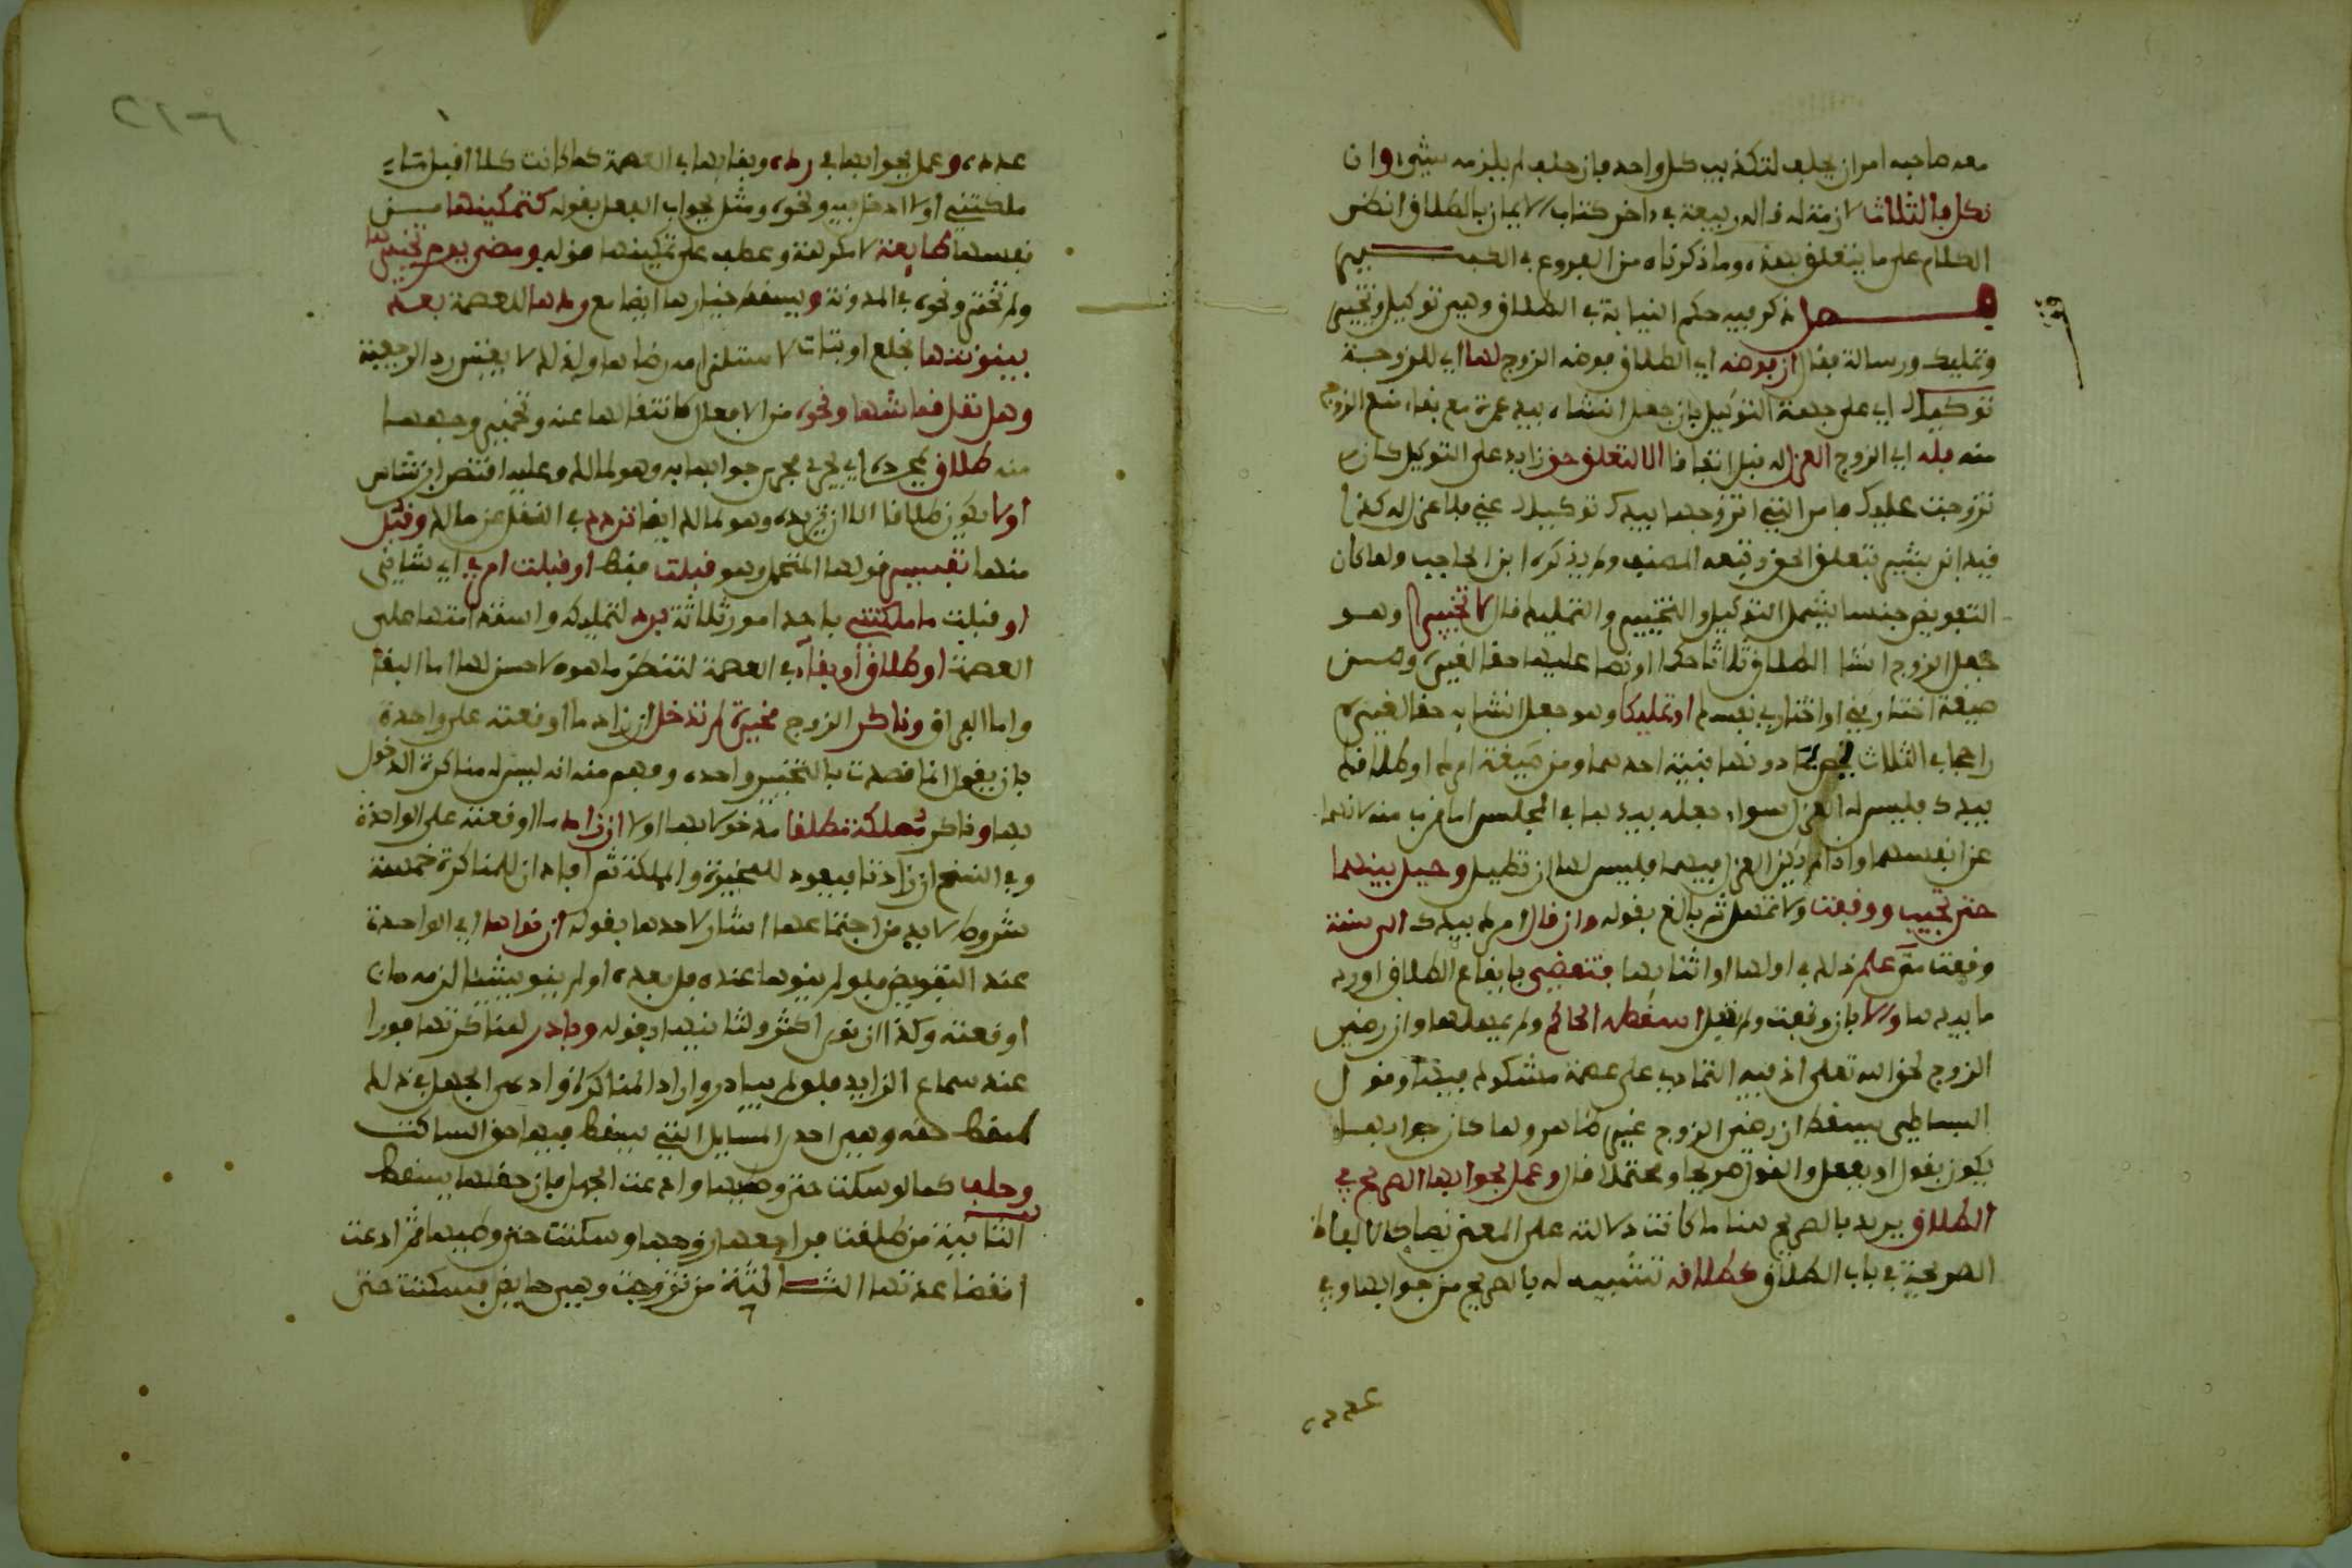 معه صاحبه امر ان يحلف لتكذيب كل واحد فان حلف لم يلزمه شيء وان
نكل فالثلاث لازمة له قاله ربيعة في داخر كتاب الايمان بالطلاق انظر
الكلام على ما يتعلق بهذه وما ذكرناه من الفروع في الكبير
فصل ذكر فيه حكم النيابة في الطلاق وهي توكيل وتخيير
وتمليك ورسالة فقال ان فوضه اي الطلاق فوضه الزوج لها اي للزوجة
توكيلا اي على جهة التوكيل بان جعل انشاه بيد غيره مع بقاء منع الزوج
منه فله اي الزوج العزل له قبل انفاذا الا لتعلق حق زايد على التوكيل كان
تزوجت عليك فامر التي اتزوجها بيدك توكيلا عني فلا عزل له كذا
قيد ابن بشير بتعلق الحق وتبعه المصنف ولم يذكره ابن الحاجب ولما كان
التفويض جنسا يشمل التوكيل والتخيير والتمليك قال لا تخييرا وهو
جعل الزوج انشا الطلاق ثلاثا حكما او نصا عليها حقا لغيره ومن
صيغه اختاريني او اختاري نفسك او تمليكا وهو جعل انشايه حقا لغيره
راجحا في الثلاث يخص بما دونها بنية احدهما ومن صيغه امرك او طلاقك
بيدك فليس له العزل سواء جعله بيدها في المجلس او ما قرب منه لانهما
عزلا نفسهما واذا لم يكن العزل فيهما فليس لها ان تطيل وحيل بينهما
حتى تجيب ووقفت ولا تمهل ثم بالغ بقوله وان قال امرك بيدك الى سنة
وقفت متى علم ذلك في اولها او اثنايها فتقضي بايقاع الطلاق او رد
ما بيدها والا بان وقفت ولم تفعل اسقطه الحاكم ولم يمهلها وان رضي
الزوج لحق الله تعلى اذ فيه التمادي على عصمة مشكوك فيها وقول
البساطي يسقط ان رضي الزوج غير ظاهر ولما كان جوابها
يكون بقول او بفعل والقول صريحا ومحتملا قال وعمل بجوابها الصريح في
الطلاق يريد بالصريح هنا ما كانت دلالته على المعنى نصا كالالفاظ
الصريحة في باب الطلاق كطلاقه تشبيه له بالصريح من جوابها وفي
عدده
٢١٦
عدده وعمل بجوابها في رده وبقايها في العصمة كما كانت كلا اقبل شاء
ملكتني او لا ادخل فيه ونحوه ومثل لجواب الفعل بقوله كتمكينها من
نفسها طايعة لا مكرهة وعطف على تمكينها قوله ومضي يوم تخييرها
ولم تختر ونحوه في المدونة ويسقط خيارها ايضا مع ردها للعصمة بعد
بينونتها بخلع او بتات لاستلزامه رضاها ولذلك لا يقتضي رد الرجعية
وهل نقل قماشها ونحوه من الافعال كانتقالها عنه وتخمير وجهها
منه طلاق بمجرده اي يجري مجرى جوابها به وهو لمالك وعليه اقتصر ابن شاس
او لا يكون طلاقا الا ان تريده وهو لمالك ايضا تردد في النقل عن مالك وقبل
منها تفسير قولها المحتمل وهو قبلت فقط او قبلت امري اي شاني
او قبلت ما ملكتني باحد امور ثلاثة برد لتمليكه واستدامتها على
العصمة او طلاق او بقاء في العصمة لتنظر ما هو الاحسن لها اما البقاء
واما الفراق وناكر الزوج مخيرة لم تدخل ان زاد ما اوقعته على واحدة
بان يقول انما قصدت بالتخيير واحده وفهم منه انه ليس له مناكرة المدخول
بها وناكر مملكة مطلقا مدخولا بها او لا ان زاد ما اوقعته على الواحدة
وفي النسخ ان زادتا فيعود للمخيرة والمملكة ثم افاد ان للمناكرة خمسة
شروط لا بد من اجتماعها اشار لاحدها بقوله ان نواها اي الواحدة
عند التفويض فلو لم ينوها عنده بل بعده او لم ينو شيئا لزمه ما
اوقعته وكذا ان نوى اكثر ولثانيها بقوله وبادر لمناكرتها فورا
عند سماع الزايد فلو لم يبادر واراد المناكرة وادعى الجهل في ذلك
سقط حقه وهي احدى المسايل التي يسقط فيها حق الساكت
وحلف كما لو سكتت حتى وطيها وادعت الجهل فان حقها يسقط
الثانية من طلقت فراجعها زوجها وسكتت حتى وطيها ثم ادعت
انقضا عدتها الثالثة من تزوجت وهي حايض فسكتت حتى